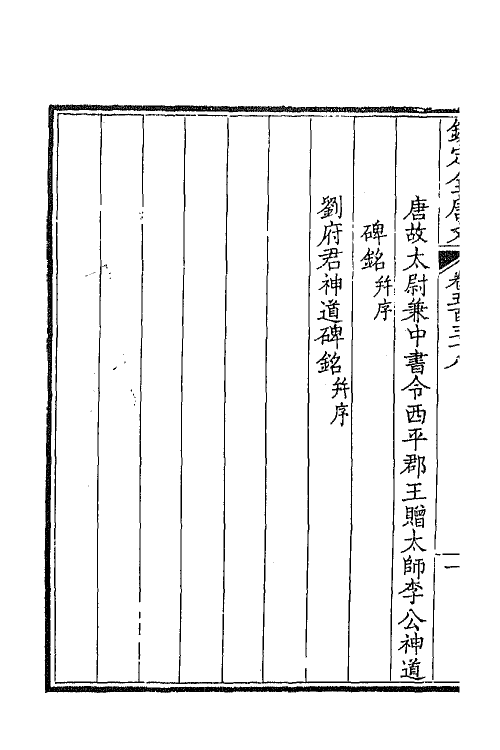 欽定全唐文 卷五百三十八 一
唐故太尉兼中書令西平郡王贈太師李公神道
碑銘 并序
劉府君神道碑銘 并序